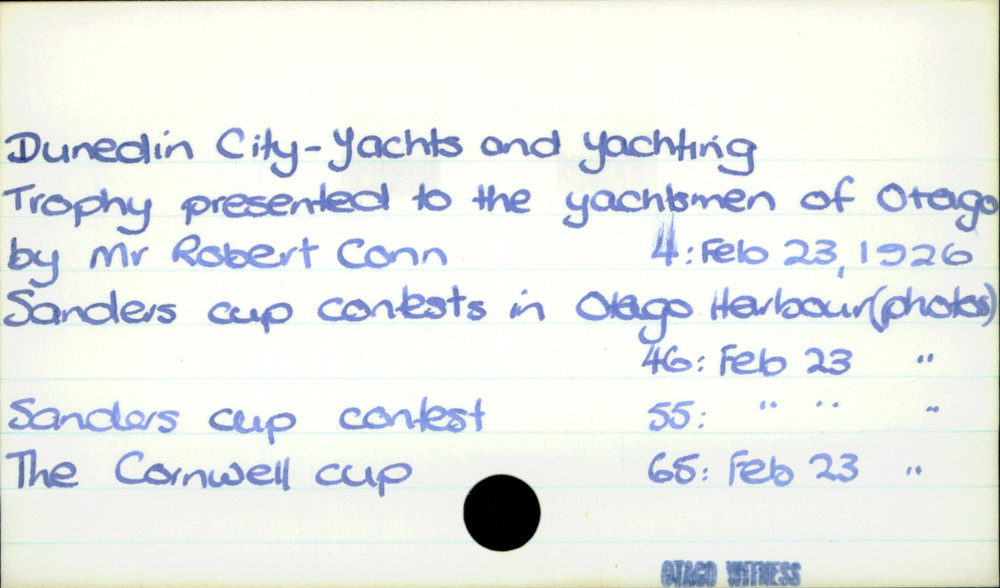 Dunedin City - Yachts and yachting
Trophy presented to the yachtsmen of Otago
by Mr Robert Conn 4: Feb 23, 1926
Sanders cup contests in Otago Harbour (photos)
46: Feb 23 "
Sanders cup contest 55: " " "
The Cornwell cup 65: Feb 23 "
OTAGO WITNESS